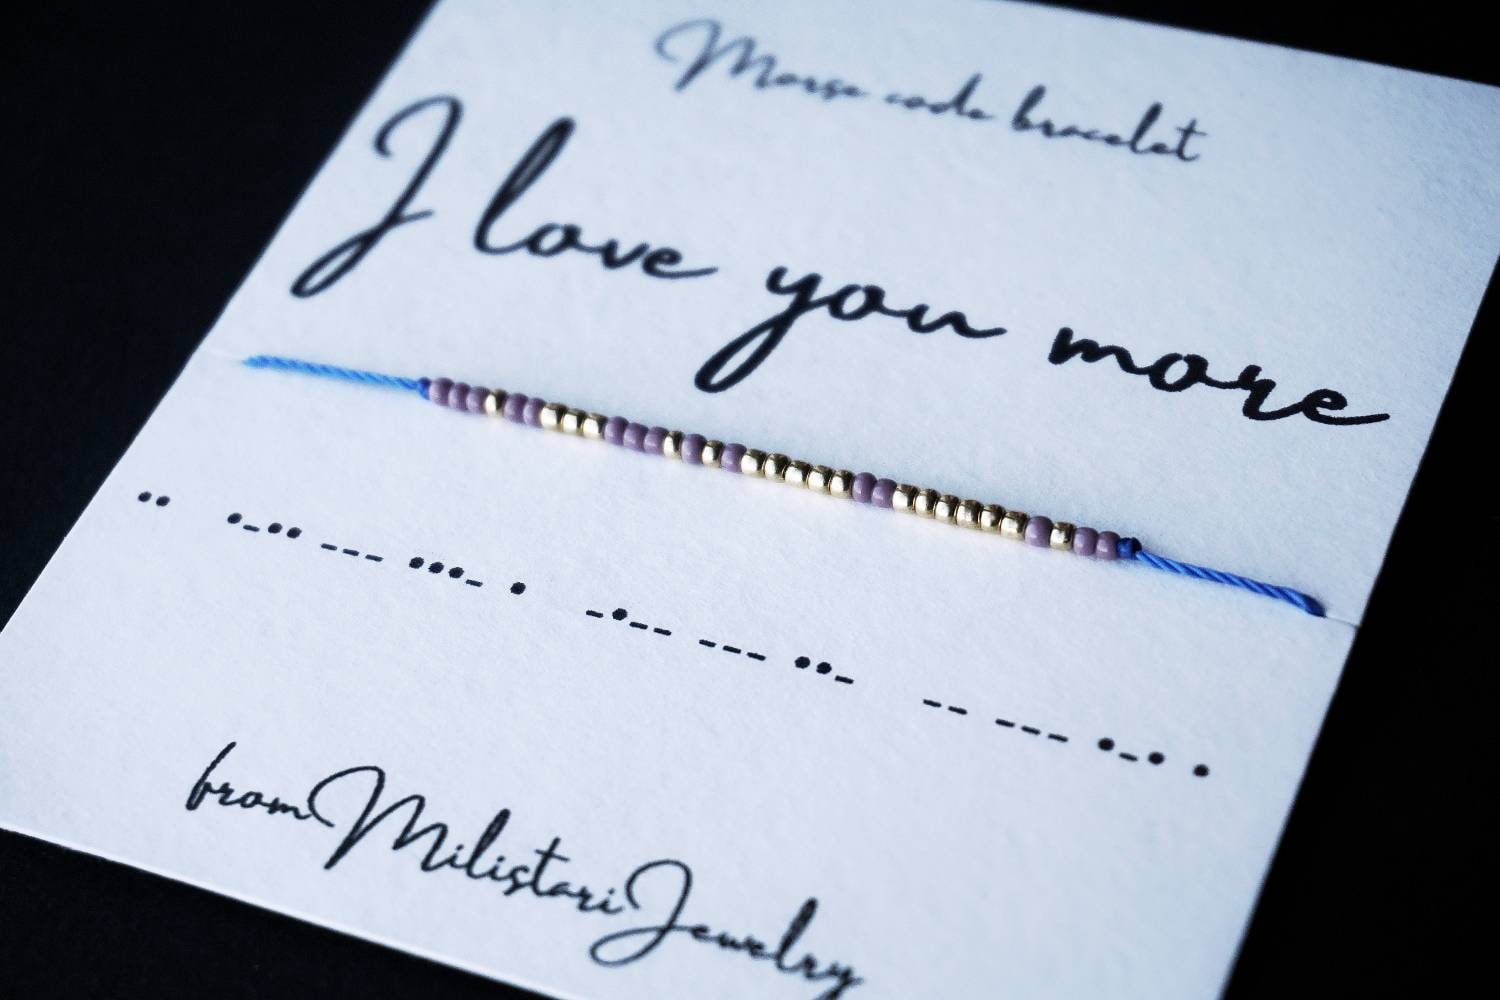 Morse code bracelet
I love you more
•• •-•• --- •••- • -•-- --- ••- -- --- •-• •
fromMilistariJewelry